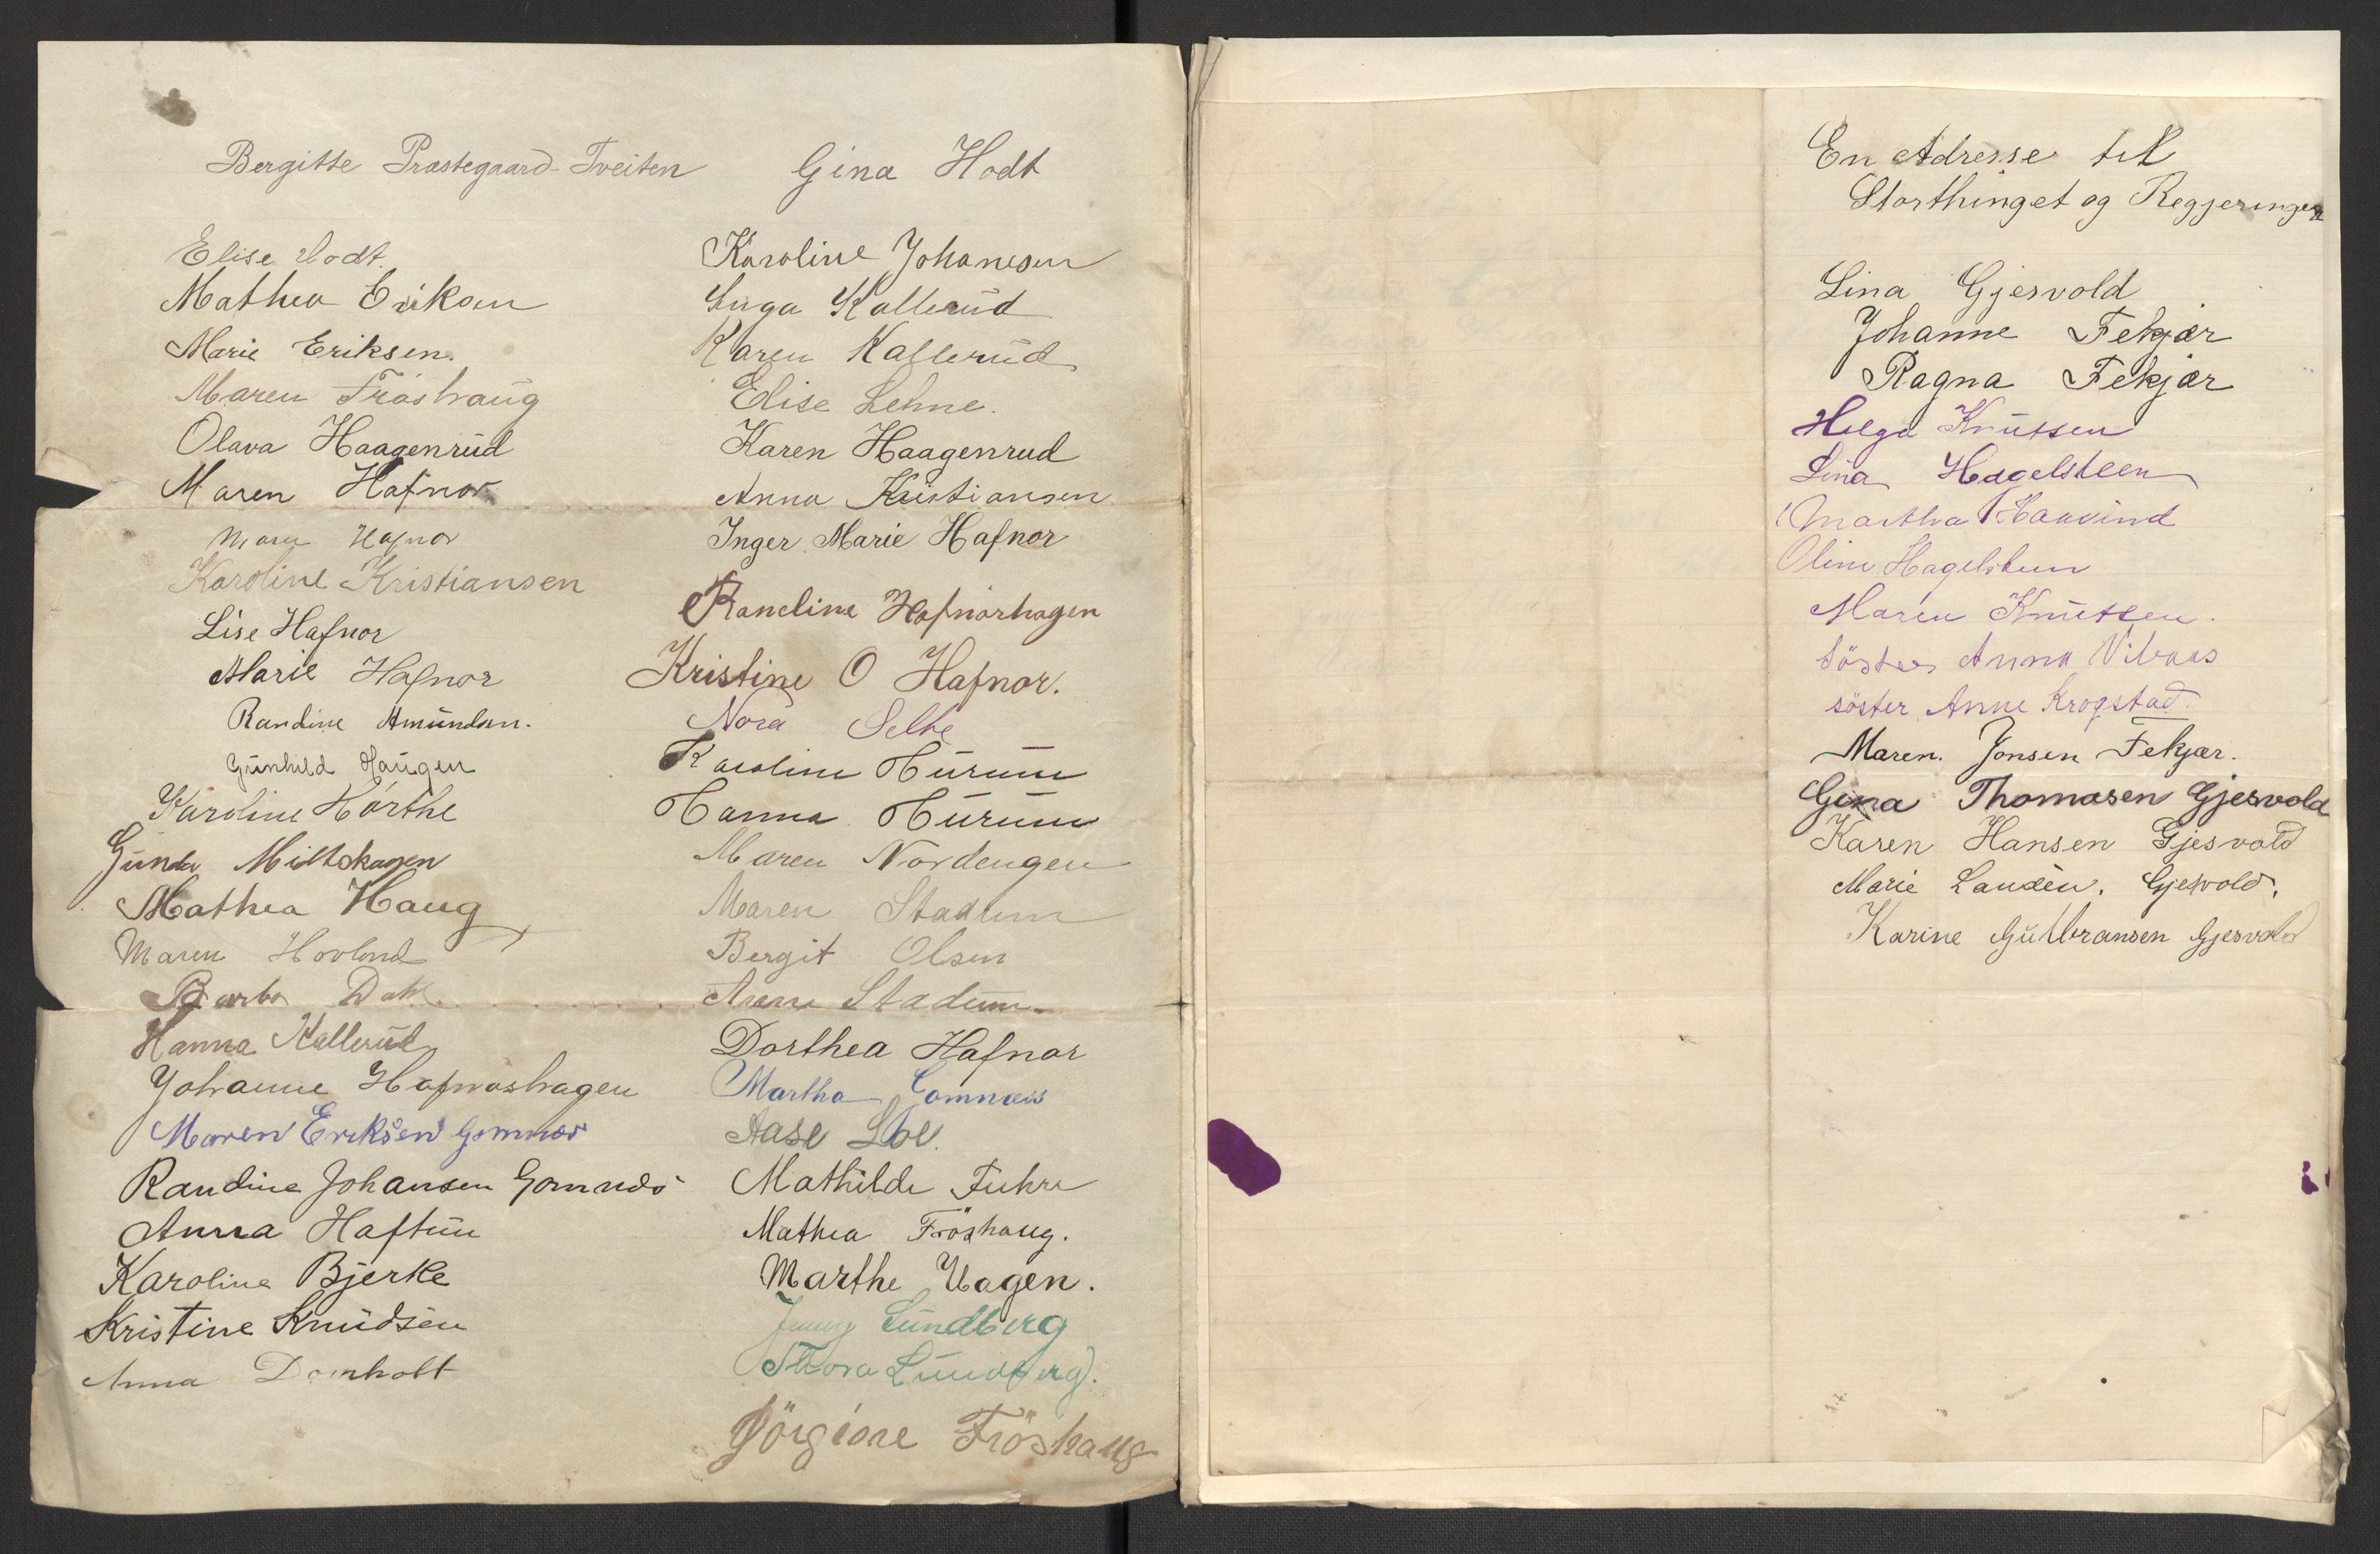 Bergitte Prastegaard-Tveiten
Elise Hodt.
Mathea Eriksen
Marie Eriksen.
Maren Fröshaug
Olava Haagenrud
Maren Hafnor
Maren Hafnor
Karoline Kristiansen
Lise Hafnor
Marie Hafnor
Randine Amundsen.
Gunhild Haugen
Karoline Horthe
Gunda
Mathea Haug
Maren Hovland
Dahl
Hanna Kallerud
Johanne Hafnorhagen
Maren Eriksen Gomnæs
Randine Johansen Gomnæs
Anna Haftun
Karoline Bjerke
Kristine Knudsen
Anna Domholt
Gina Hodt
Karoline Johanesen
Inga Kallerud
Karen Kallerud
Elise Lehne.
Karen Haagenrud
Anna Kristiansen
Inger Marie Hafnor
Randine Hafnorhagen
Kristine O Hafnor.
Nora Selte
Karoline Hurum
Hanna Hurum
Maren Nordengen
Maren Stadum
Bergit Olsen
Anne Stadum
Dorthea Hafnor
Martha Gomnæs
Aase Loe.
Mathilde Fuhre
Mathea Fröshaug.
Marthe Hagen.
Jenny Lundberg
Thora Lundberg.
Jörgine Fröshaug
En Adresse til
Storthinget og Regjeringen
Lina Gjesvold
Johanne Fekjær
Ragna Fekjær
Helga Knutsen
Lina Hagelsteen
Martha Haavind
Oline Hagelsteen
Maren Knutsen.
Söster Anna
söster Anne Krogstad.
Maren. Jonsen Fekjær.
Gina Thomasen Gjesvold
Karen Hansen Gjesvold
Marie Gjesvold.
Karine Gulbransen Gjesvold